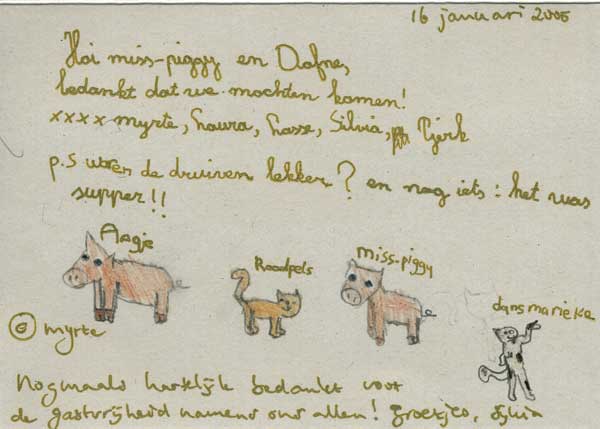 16 januari 2006
Hoi miss-piggy en Dafne,
bedankt dat we mochten komen!
xxxx myrte, Laura, Lasse, Silvia, Tjerk
p.s waren de druiven lekker? en nog iets: het was
supper!!
Aagje
Roodpels
miss-piggy
dansmarieke
© myrte
Nogmaals hartelijk bedankt voor
de gastvrijheid namens ons allen! Groetjes, Sylvia